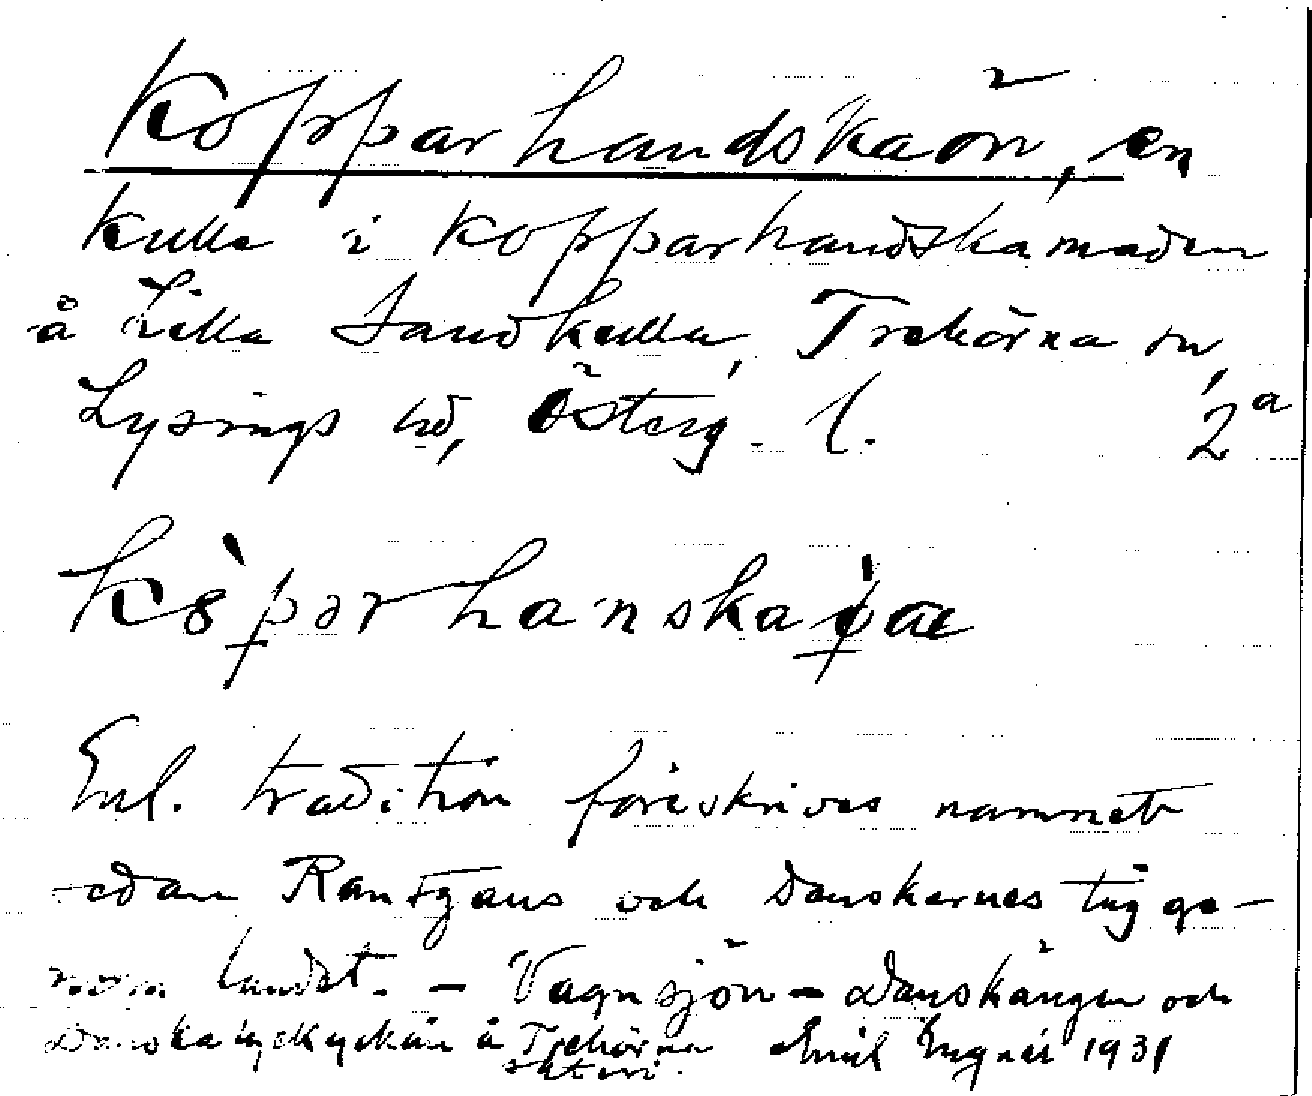 Kopparhandskaön, en
kulle i Kopparhandskamaden
å Lilla Sandkulla, Trehörna sn,
Lysings hd, Österg. l. 2a
Enl. tradition förskrives namnet
sedan Rantzaus och Danskernes tåg ge-
nom landet. – Vagnsjön – Danskängen och
å Trehörna Emil 1931
säteri.